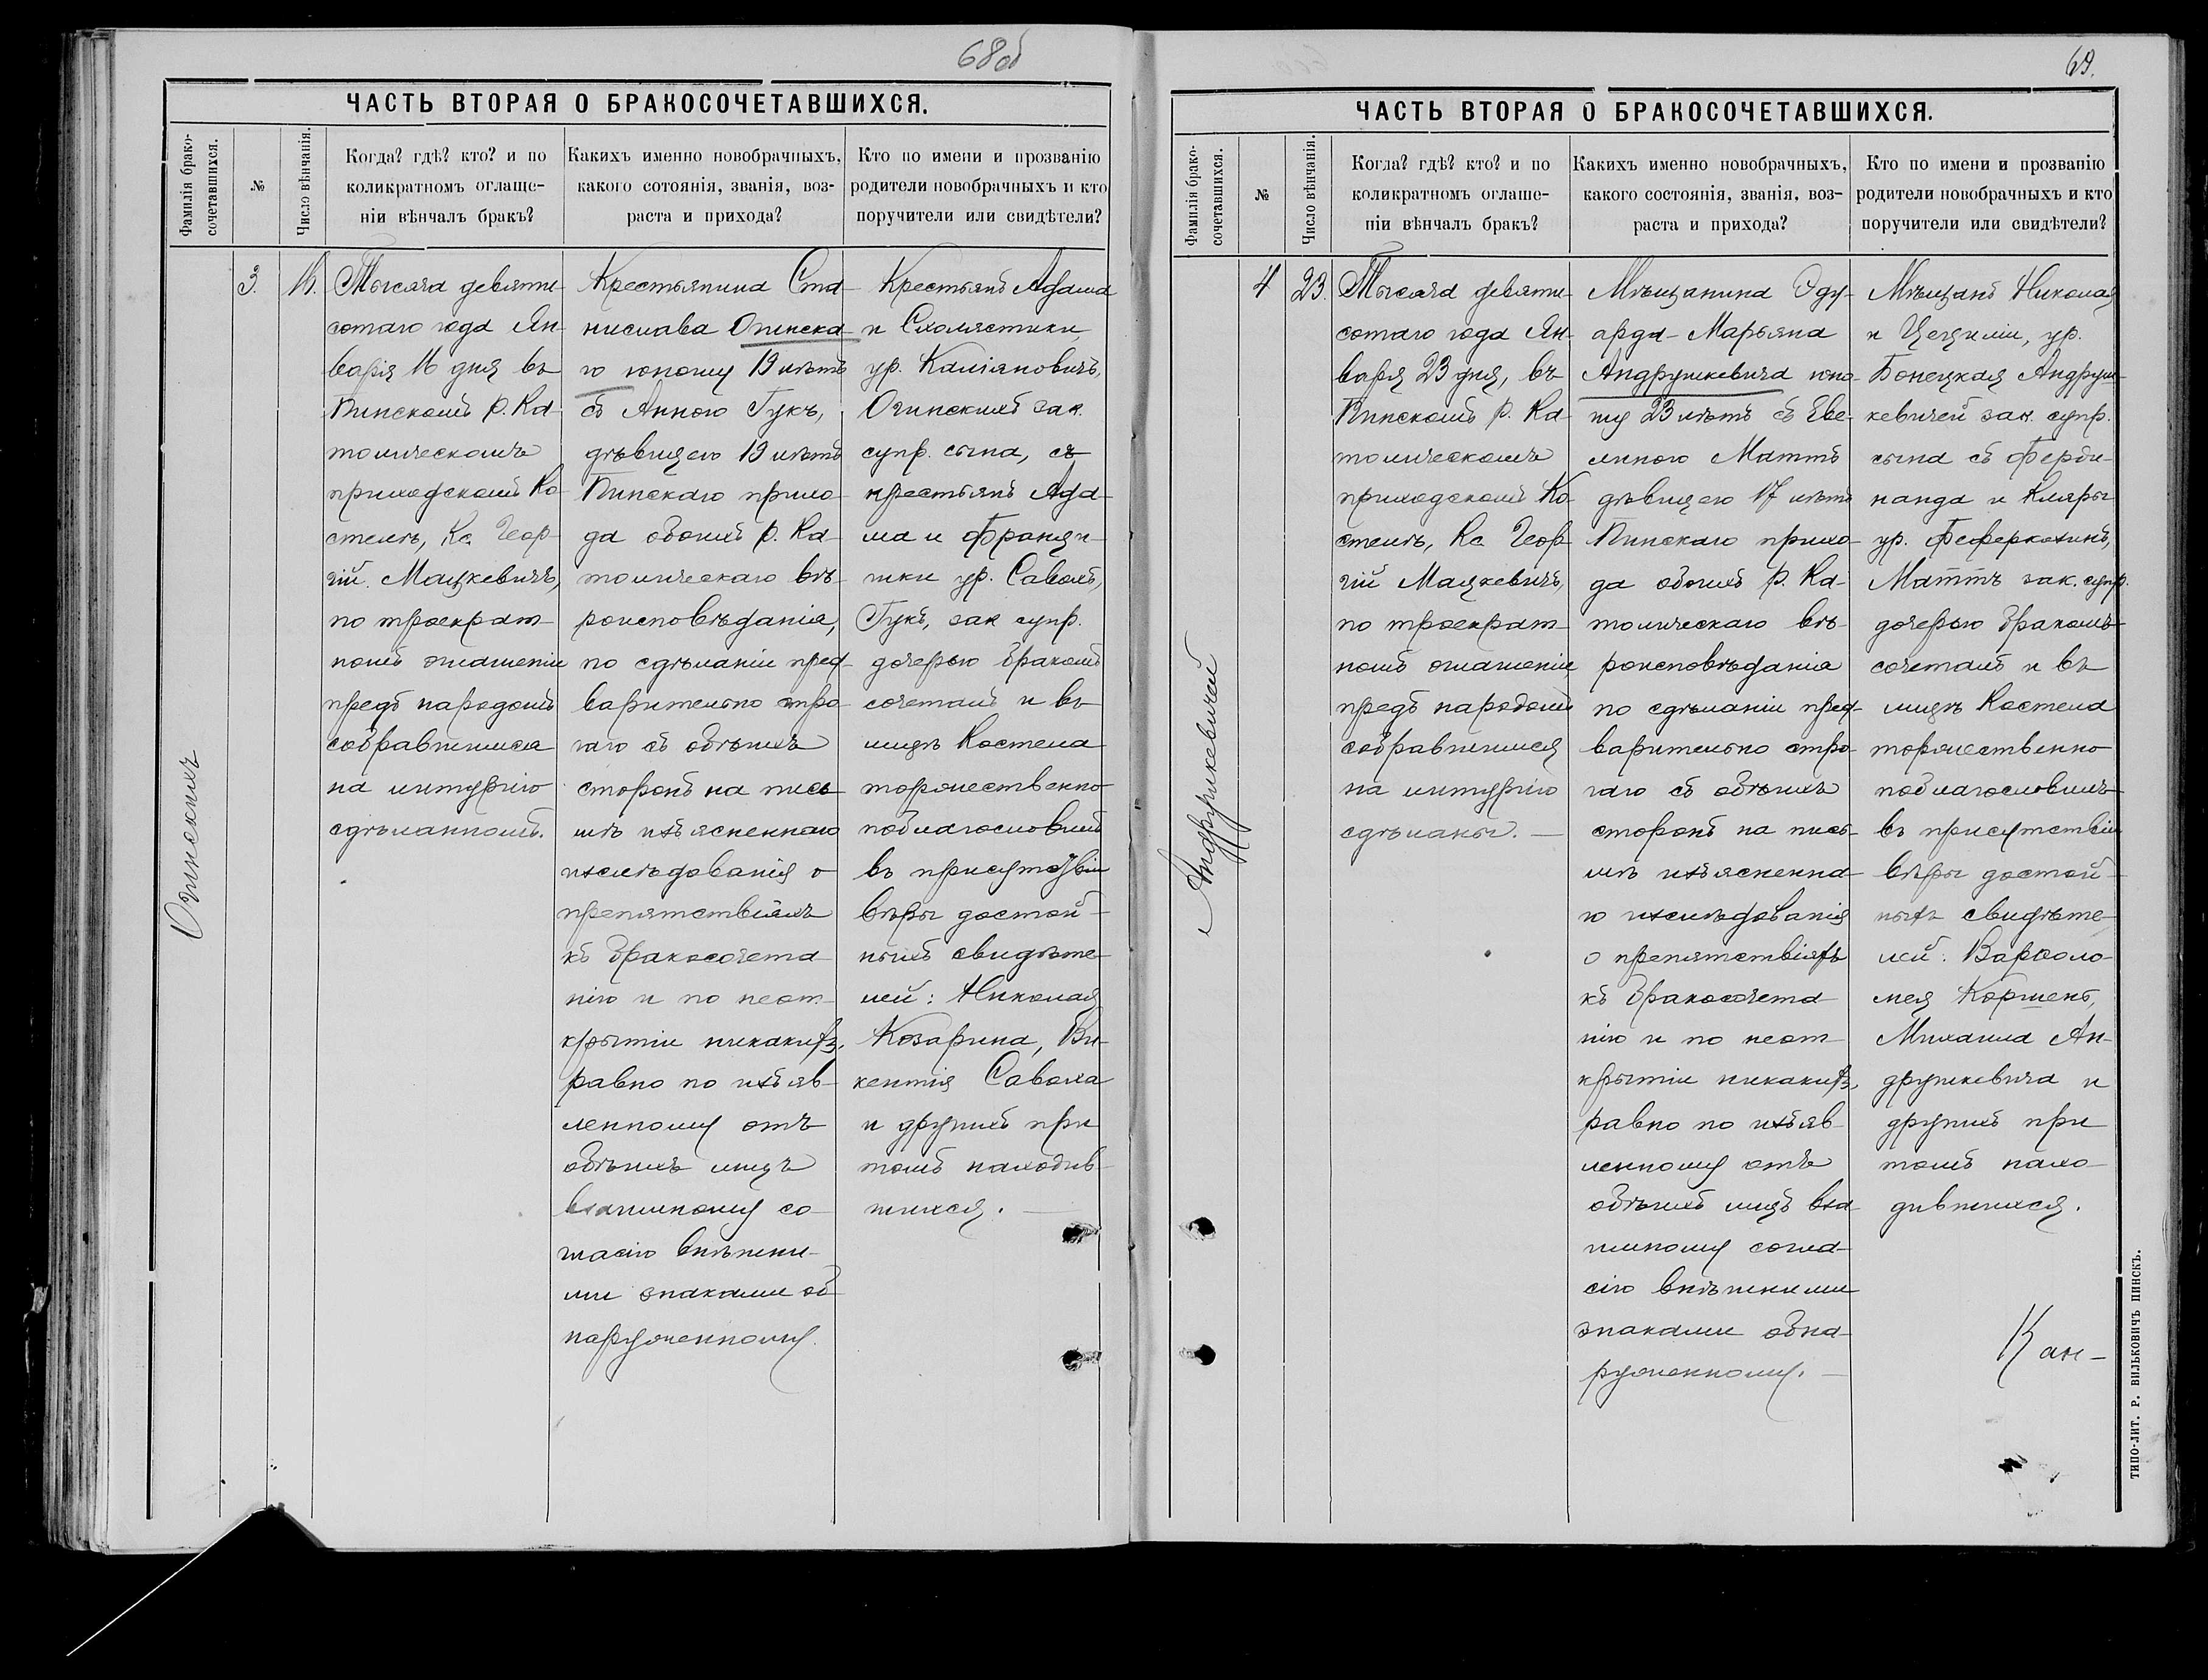 68об
ЧАСТЬ ВТОРАЯ О БРАКОСОЧЕТАВШИХСЯ.
Фамилія брако-
сочетавшихся.
№
Число вѣнчанія.
Когда? гдѣ? кто? и по
коликратномъ оглаше-
ніи вѣнчалъ бракъ?
Какихъ именно новобрачныхъ,
какого сотоянія, званія, воз-
раста и прихода?
Кто по имени и прозванію
родители новобрачныхъ и кто
поручители или свидѣтели?
Огинскихъ
3.
16.
Тысяча девяти-
сотаго года Ян-
варя 16 дня въ
Пинскомъ Р. Ка-
толическомъ
приходскомъ Ко-
стелѣ, Кс. Геор-
гій Мацкевичъ,
по троекрат-
номъ оглашеніи
предъ народомъ
собравшимся
на литургію
сдѣланномъ.
Крестьянина Ста-
нислава Огинска-
го юношу 19 лѣтъ
съ Анною Гукъ,
дѣвицею 19 лѣтъ
Пинскаго прихо-
да обоихъ р. Ка-
толическаго вѣ-
роисповѣданія,
по сдѣланіи пред-
варительно стро-
гаго съ обѣихъ
сторонъ на пись-
мѣ изъясненнаго
изслѣдованія о
препятствіяхъ
къ бракосочета-
нію и по неот-
крытіи никакихъ,
равно по изъяв-
ленному отъ
обѣихъ лицъ
взаимному со-
гласію внѣшни-
ми знаками об-
наруженному.
Крестьянъ Адама
и Схолястики,
ур. Касіяновичъ,
Огинскихъ зак.
супр. сына, съ
крестьянъ Ада-
ма и Францѣ-
шки ур. Саволъ,
Гукъ, зак супр.
дочерью бракомъ
сочеталъ и въ
лицѣ Костела
торжественно
поблагословилъ
въ присутствіи
вѣры достой-
ныхъ свидѣте-
лей: Николая
Козарина, Ви-
кентія Савола
и другихъ при
томъ находив-
шихся.
69.
ЧАСТЬ ВТОРАЯ О БРАКОСОЧЕТАВШИХСЯ.
Фамилія брако-
сочетавшихся.
№
Число вѣнчанія.
Когда? гдѣ? кто? и по
коликратномъ оглаше-
ніи вѣнчалъ бракъ?
Какихъ именно новобрачныхъ,
какого состоянія, званія, воз-
раста и прихода?
Кто по имени и прозванію
родители новобрачныхъ и кто
поручители или свидѣтели?
Андрушкевичей
4
23.
Тысяча девяти-
сотаго года Ян-
варя 23 дня, въ
Пинскомъ р. Ка-
толическомъ
приходскомъ Ко-
стелѣ, Кс Геор-
гій Мацкевичъ,
по троекрат-
номъ оглашеніи,
предъ народомъ
собравшимся
на литургію
сдѣланы.
Мѣщанина Эду-
арда-Марьяна
Андрушкевича юно-
шу 23 лѣтъ съ Еве-
линою Маттъ
дѣвицею 17 лѣтъ
Пинскаго прихо-
да обоихъ р. Ка-
толическаго вѣ-
роисповѣданія
по сдѣланіи пред-
варительно стро-
гаго съ обѣихъ
сторонъ на пись-
мѣ изъясненна-
го изслѣдованія
о препятствіяхъ
къ бракосочета-
нію и по неот-
крытіи никакихъ,
равно по изъяв-
ленному отъ
обѣихъ лицъ вза-
имному согла-
сію внѣшними
знаками обна-
руженному.
Мѣщанъ Николая
и Цециліи, ур.
Бонецкая Андруш-
кевичей зак. супр.
сына съ Ферди-
нанда и Кляры
ур.
Маттъ зак. супр.
дочерью бракомъ
сочеталъ и въ
лицѣ Костела
торжественно
поблагословилъ
въ присутствіи
вѣры достой-
ныхъ свидѣте-
лей: Варѳоло-
мея Коршенъ,
Михаила Ан-
друшкевича и
другихъ при
томъ нахо-
дившихся.
Кан-
ТИПО-ЛИТ. Р. ВИЛЬКОВИЧЪ ПИНСКЪ.